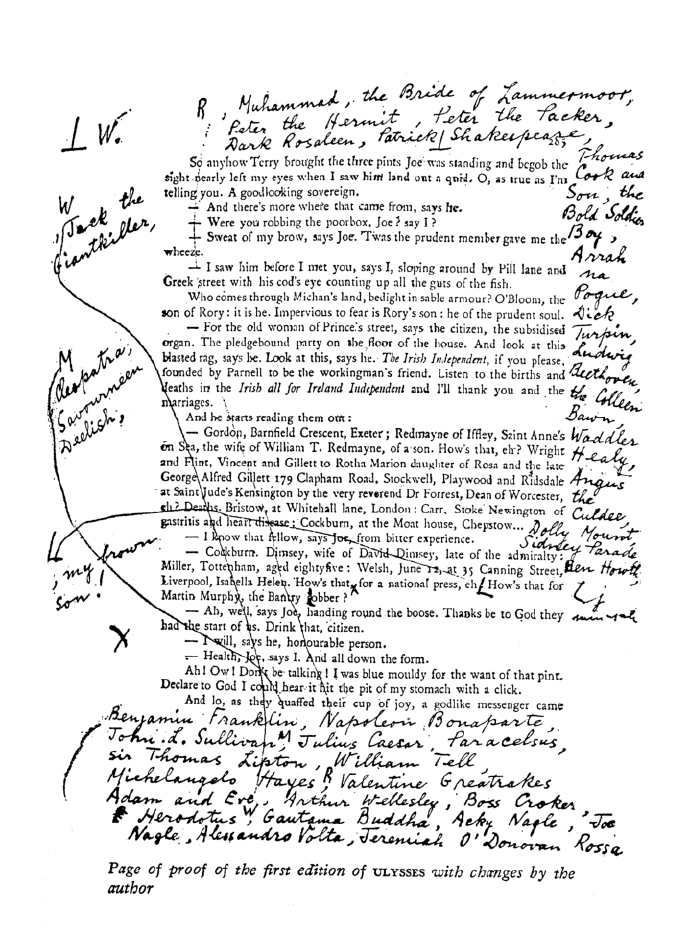 R , Muhammad, the Bride of Lammermoor,
Peter the Hermit, Peter the Packer,
Dark Rosaleen, Patrick Shakespeare,
I W.
Thomas
Cook and
Son, the
Bold Soldier
Boy,
Arrah
na
Pogue,
Dick
Turpin,
Ludwig
Beethoven,
the Colleen
Bawn
Waddler
Healy,
Angus
the
Culdee,
Dolly Mount
Sidney Parade
Ben Howth,
W
, Jack the
Giantkiller,
M
Cleopatra,
Savourneen
Deelish,
So anyhow Terry brought the three pints Joe was standing and begob the
sight nearly left my eyes when I saw him land out a quid. O, as true as I'm
telling you. A goodlooking sovereign.
— And there's more where that came from, says he.
— Were you robbing the poorbox, Joe? say I?
— Sweat of my brow, says Joe. 'Twas the prudent member gave me the
wheeze.
— I saw him before I met you, says I, sloping around by Pill lane and
Greek street with his cod's eye counting up all the guts of the fish.
Who comes through Michan's land, bedight in sable armour? O'Bloom, the
son of Rory: it is he. Impervious to fear is Rory's son: he of the prudent soul.
— For the old woman of Prince's street, says the citizen, the subsidised
organ. The pledgebound party on the floor of the house. And look at this
blasted rag, says he. Look at this, says he. The Irish Independent, if you please,
founded by Parnell to be the workingman's friend. Listen to the births and
deaths in the Irish all for Ireland Independent and I'll thank you and the
marriages.
And he starts reading them out:
— Gordon, Barnfield Crescent, Exeter; Redmayne of Iffley, Saint Anne's
on Sea, the wife of William T. Redmayne, of a son. How's that, eh? Wright
and Flint, Vincent and Gillett to Rotha Marion daughter of Rosa and the late
George Alfred Gillett 179 Clapham Road, Stockwell, Playwood and Ridsdale
at Saint Jude's Kensington by the very reverend Dr Forrest, Dean of Worcester,
eh? Deaths. Bristow, at Whitehall lane, London: Carr, Stoke Newington of
gastritis and heart disease: Cockburn, at the Moat house, Chepstow...
— I know that fellow, says Joe, from bitter experience.
— Cockburn. Dimsey, wife of David Dimsey, late of the admiralty:
Miller, Tottenham, aged eightyfive: Welsh, June 12, at 35 Canning Street,
Liverpool, Isabella Helen. How's that for a national press, eh? How's that for
Martin Murphy, the Bantry jobber?
— Ah, well, says Joe, handing round the boose. Thanks be to God they
had the start of us. Drink that, citizen.
— I will, says he, honourable person.
— Health, Joe, says I. And all down the form.
Ah! Ow! Don't be talking! I was blue mouldy for the want of that pint.
Declare to God I could hear it hit the pit of my stomach with a click.
And lo, as they quaffed their cup of joy, a godlike messenger came
L
, my brown
son!
X
Benjamin Franklin, Napoleon Bonaparte,
John L. Sullivan, M Julius Caesar, Paracelsus,
sir Thomas Lipton, William Tell,
Michelangelo Hayes, R Valentine Greatrakes
Adam and Eve, Arthur Wellesley, Boss Croker,
Herodotus, W Gautama Buddha, Acky Nagle, Joe
Nagle, Alessandro Volta, Jeremiah O'Donovan Rossa
Page of proof of the first edition of ULYSSES with changes by the
author